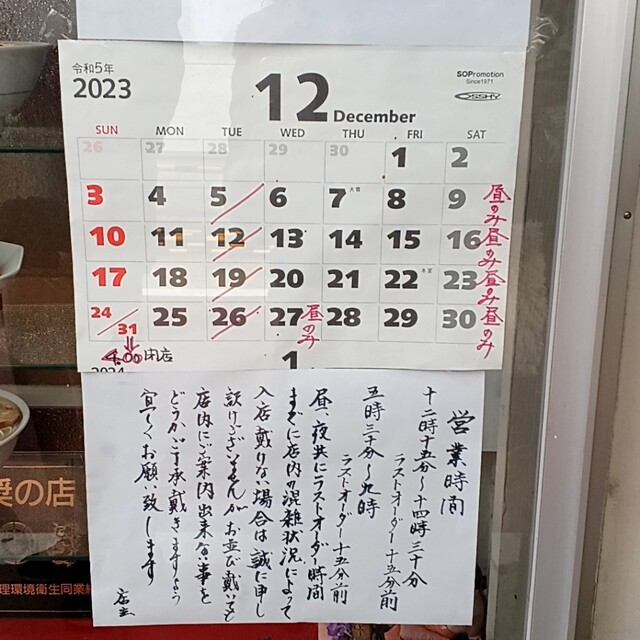 令和5年
2023
12
December
SOPromotion
Since1971
OSSHY
SUN MON TUE WED THU FRI SAT
26 27 28 29 30 1 2
3 4 5 6 7 大雪 8 9 昼のみ
10 11 12 13 14 15 16 昼のみ
17 18 19 20 21 22 冬至 23 昼のみ
24/31 25 26 27 昼のみ 28 29 30 昼のみ
4:00閉店
2024
1
営業時間
十二時十五分〜十四時三十分
ラストオーダー十五分前
五時三十分〜九時
ラストオーダー十五分前
昼、夜共にラストオーダー時間
までに店内の混雑状況によって
入店戴けない場合は誠に申し
訳けございませんがお並び戴いても
店内にご案内出来ない事を
どうかご了承戴きますよう
宜しくお願い致します
店主
奨の店
理環境衛生同業組